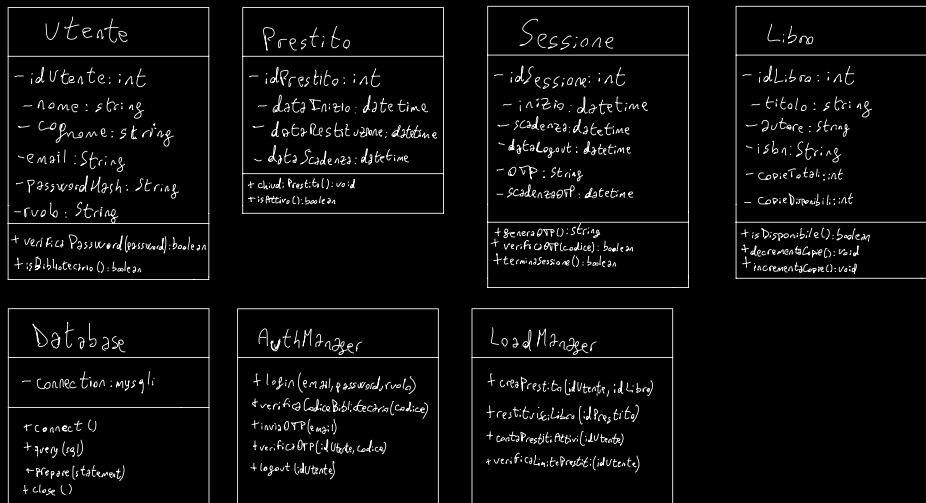 Utente
- idUtente: int
- nome: string
- cognome: string
- email: String
- passwordHash: String
- ruolo: String
+ verificaPassword(password): boolean
+ isBibliotecario(): boolean
Prestito
- idPrestito: int
- dataInizio: datetime
- dataRestituzione: datetime
- dataScadenza: datetime
+ chiudiPrestito(): void
+ isAttivo(): boolean
Sessione
- idSessione: int
- inizio: datetime
- scadenza: datetime
- dataLogout: datetime
- OTP: String
- scadenzaOTP: datetime
+ generaOTP(): String
+ verificaOTP(codice): boolean
+ terminaSessione(): boolean
Libro
- idLibro: int
- titolo: string
- autore: String
- isbn: String
- copieTotali: int
- copieDisponibili: int
+ isDisponibile(): boolean
+ decrementaCopie(): void
+ incrementaCopie(): void
Database
- Connection: mysqli
+ connect()
+ query(sql)
+ prepare(statement)
+ close()
AuthManager
+ login(email, password, ruolo)
+ verificaCodiceBibliotecario(codice)
+ inviaOTP(email)
+ verificaOTP(idUtente, codice)
+ logout(idUtente)
LoadManager
+ creaPrestito(idUtente, idLibro)
+ restituisciLibro(idPrestito)
+ contaPrestitiAttivi(idUtente)
+ verificaLimitePrestiti(idUtente)